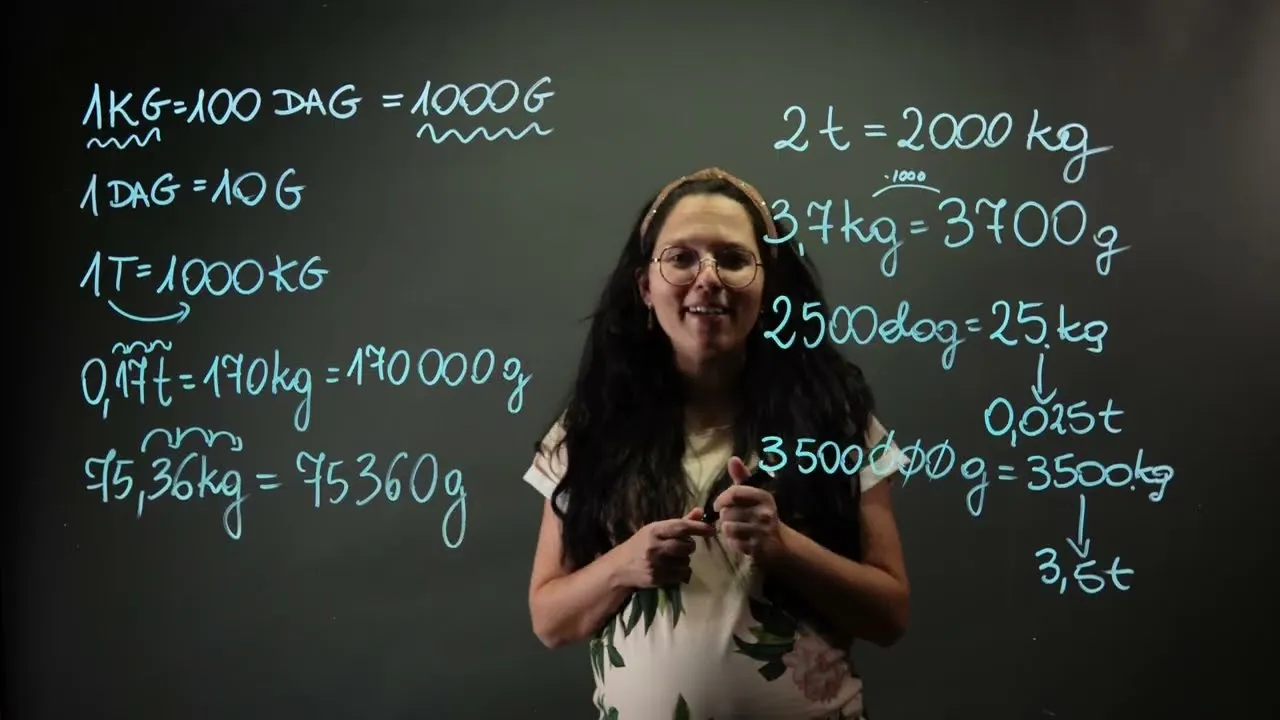 1KG=100 DAG =1000G
1DAG=10G
1T=1000KG
0,17t=170kg=170000g
75,36kg= 75360g
2t=2000 kg
·1000
3,7kg=3700g
2500dag=25.kg
0,025t
3500000g=3500.kg
3,5t